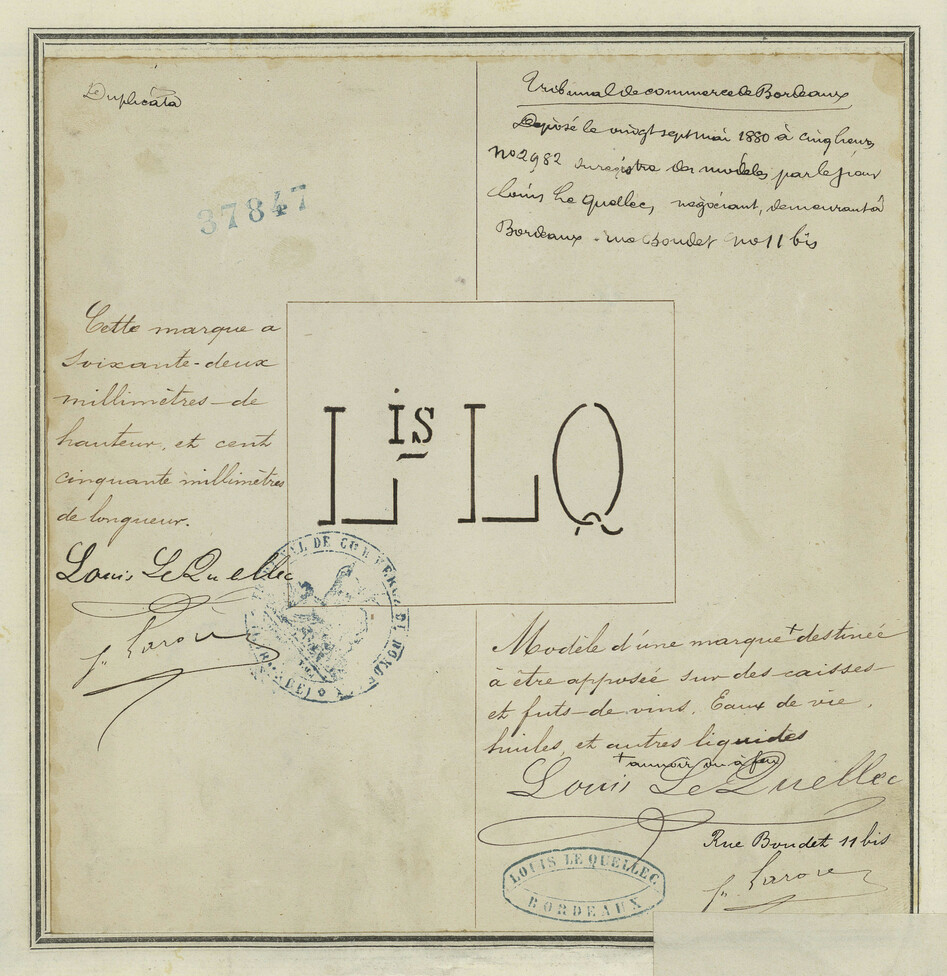 Duplicata
37847
Tribunal de commerce de Bordeaux
Déposé le vingt sept mai 1880 à cinq heures
no 2982 du registre des modèles par le sieur
Louis Le Quellec, négociant, demeurant à
Bordeaux, rue Boudet no 11 bis
Cette marque a
soixante-deux
millimètres de
hauteur, et cent
cinquante millimètres
de longueur.
Louis Le Quellec
Lis LQ
Modèle d'une marque + destinée
à être apposée sur des caisses
et futs de vins, Eaux de vie,
huiles, et autres liquides
+ au noir ou à feu
Louis Le Quellec
Rue Boudet 11 bis
LOUIS LE QUELLEC
BORDEAUX